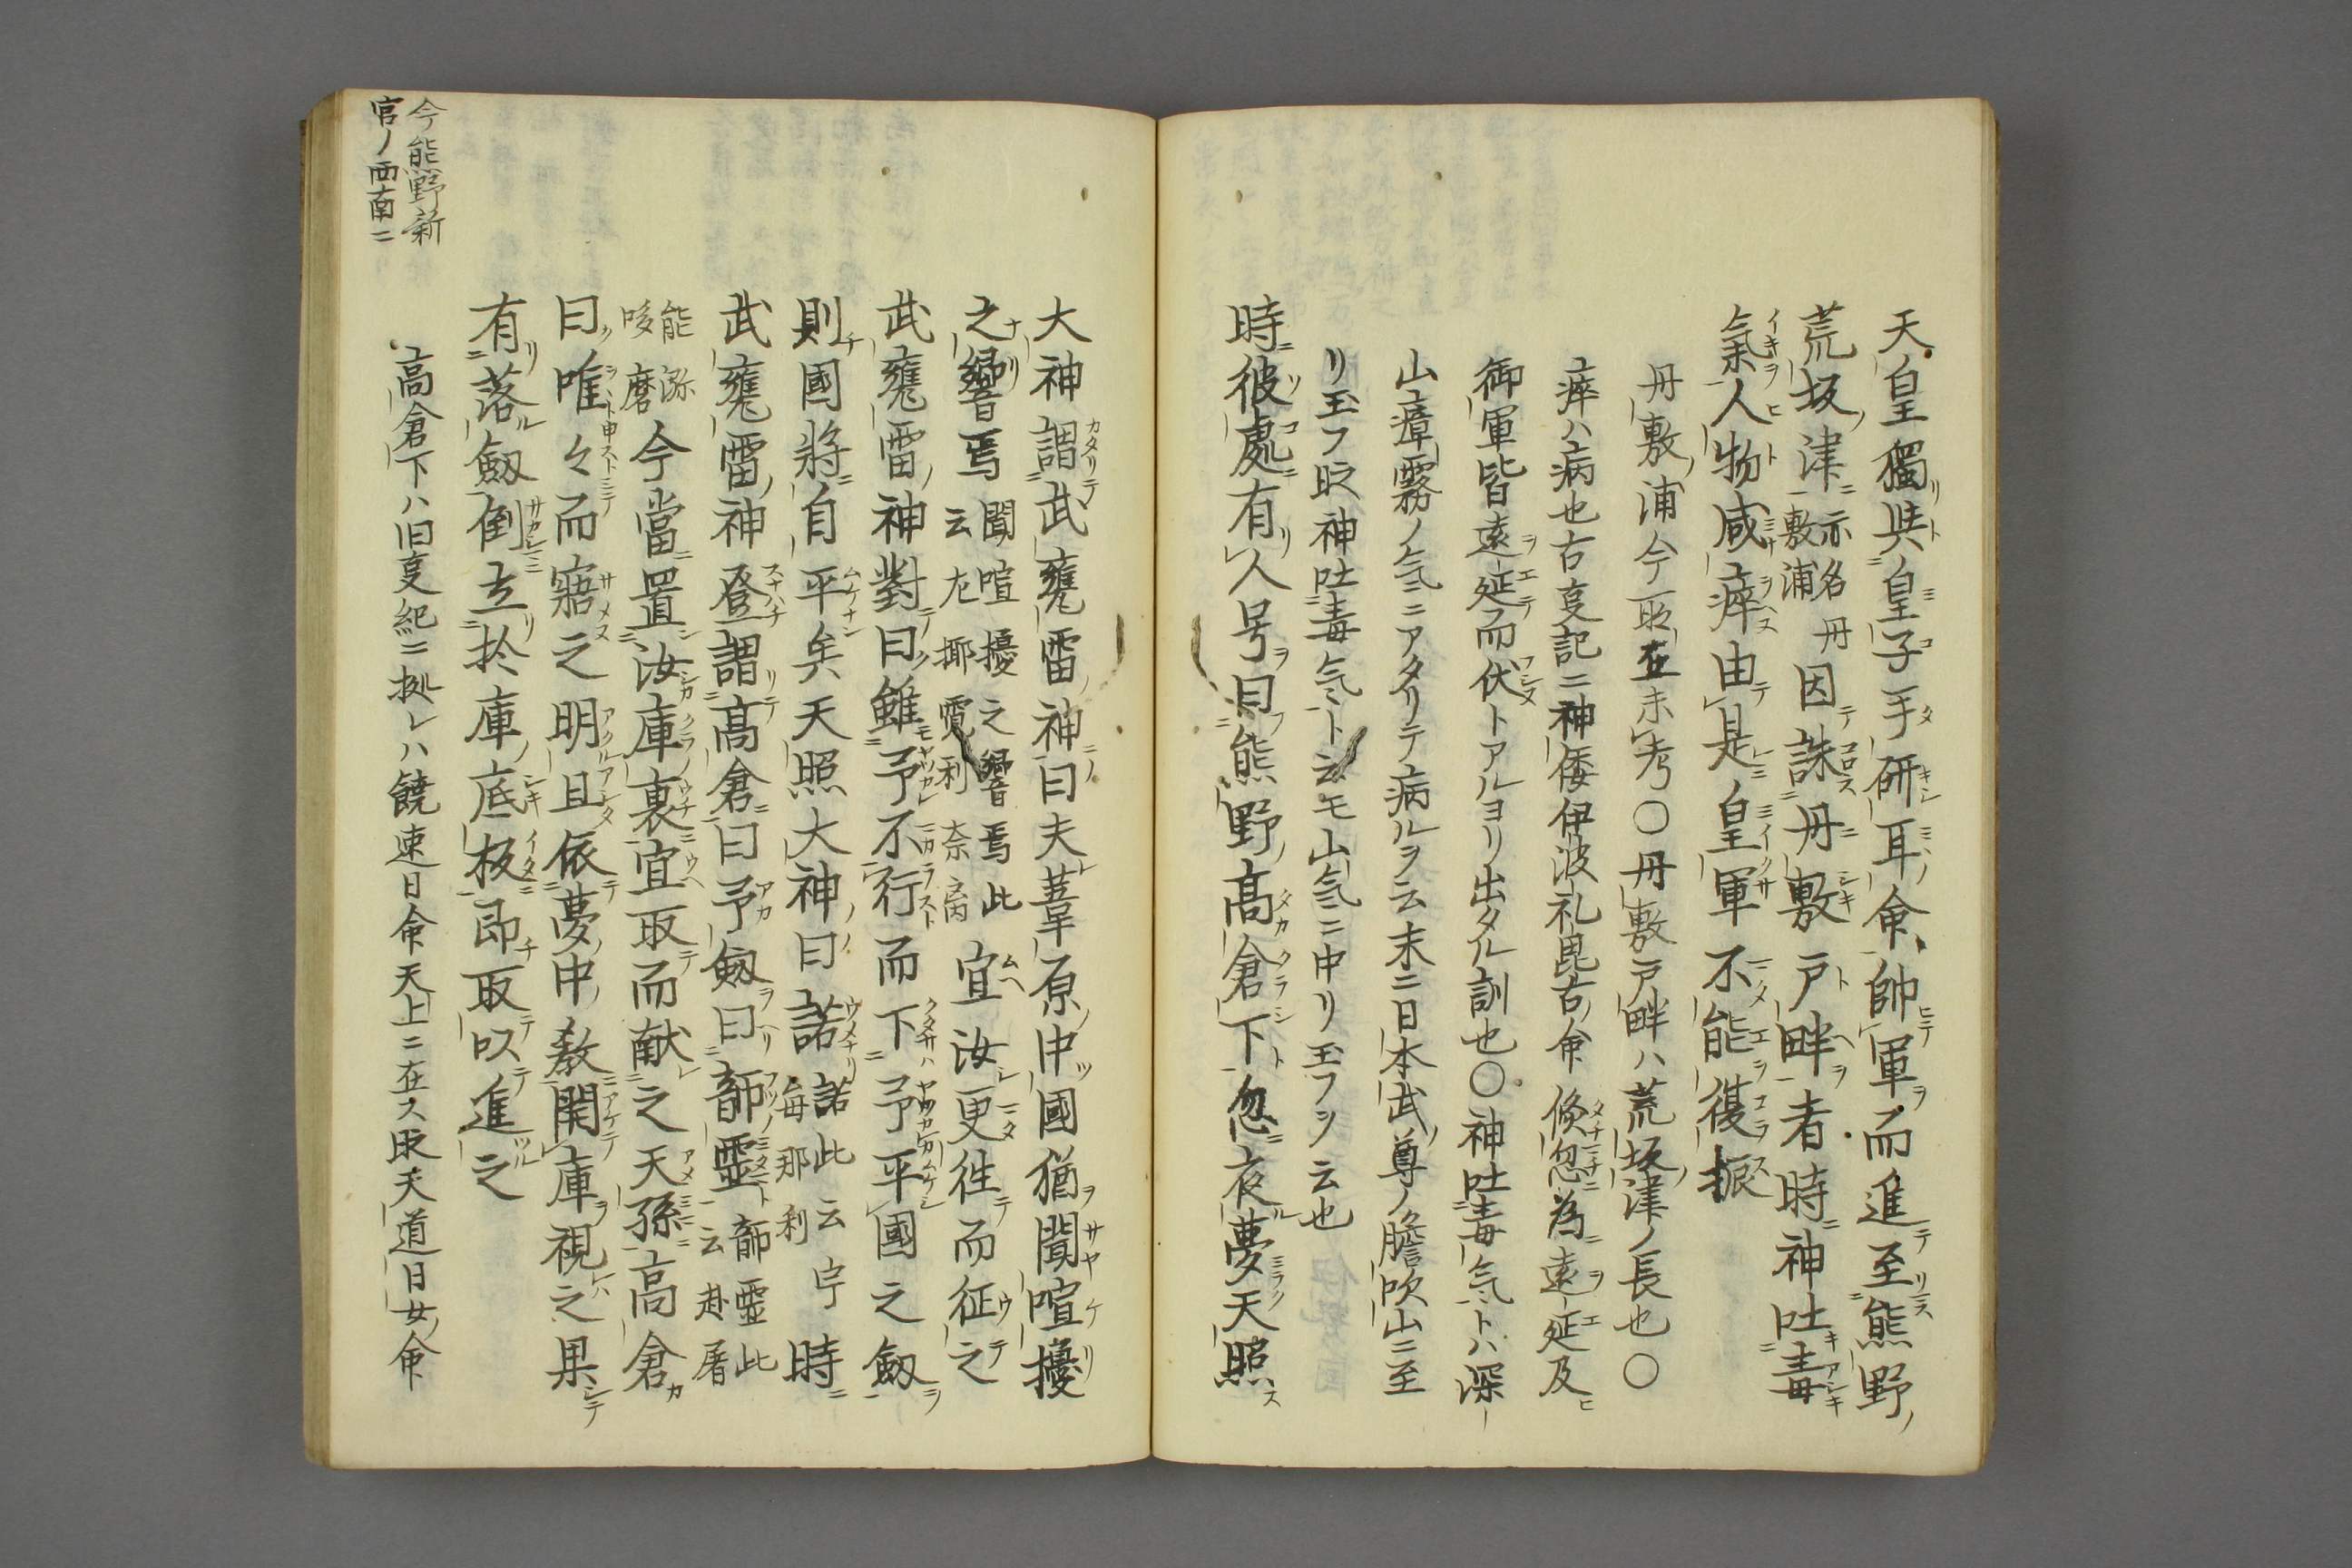 天皇獨與皇子手研耳命帥軍而進至熊野
荒坂津亦名丹敷浦因誅丹敷戸畔者時神吐毒
氣人物咸瘁由是皇軍不能復振
丹敷浦今取在未考〇丹敷戸畔ハ荒坂津ノ長也〇
瘁ハ病也古事記ニ神倭伊波礼毘古命倐忽為遠延及
御軍皆遠延而伏トアルヨリ出タル訓也〇神吐毒気トハ深
山瘴霧ノ気ニアタリテ病ルヲ云末ニ日本武尊ノ膽吹山ニ至
リ玉フ时神吐毒気ト云モ山気ニ中リ玉フヲ云也
時彼處有人号曰熊野髙倉下忽夜夢天照
大神謂武甕雷神曰夫葦原中國猶聞喧擾
之響焉聞喧擾之響焉此云左揶霓利奈離宜汝更往而征之
武甕雷神對曰雖予不行而下予平國之劔
則國將自平矣天照大神曰諾諾此云宇毎那利時
武甕雷神登謂髙倉曰予劔曰韴靈韴靈此云赴屠
能瀰哆磨今當置汝庫裏宜取而献之天孫高倉
曰唯々而寤之明旦依夢中教開庫視之果
有落劔倒立於庫底板即取以進之
高倉下ハ旧事紀ニ拠レハ饒速日命天上ニ在ス时天道日女命
今熊野新
宮ノ西南ニ